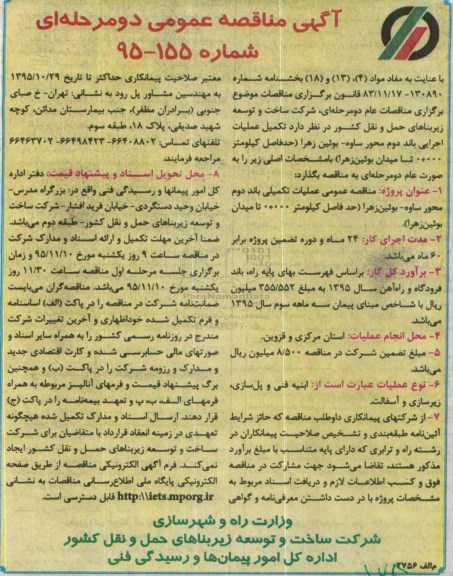 آگهی مناقصه عمومی دومرحله‌ای
شماره ۱۵۵-۹۵
با عنایت به مفاد مواد (۴)، (۱۳) و (۱۸) بخشنامه شماره
۱۳۰۸۹۰- ۸۳/۱۱/۱۷ قانون برگزاری مناقصات موضوع
برگزاری مناقصات عام دومرحله‌ای، شرکت ساخت و توسعه
زیربناهای حمل و نقل کشور در نظر دارد تکمیل عملیات
اجرایی باند دوم محور ساوه- بوئین زهرا (حدفاصل کیلومتر
۰+۰۰۰ تا میدان بوئین‌زهرا) بامشخصات اصلی زیر را به
صورت عام دومرحله‌ای به مناقصه بگذارد:
۱- عنوان پروژه: مناقصه عمومی عملیات تکمیلی باند دوم
محور ساوه- بوئین‌زهرا (حد فاصل کیلومتر ۰+۰۰۰ تا میدان
بوئین‌زهرا).
۲- مدت اجرای کار: ۲۴ ماه و دوره تضمین پروژه برابر
۶۰ ماه می‌باشد.
۳- برآورد کل کار: براساس فهرست بهای پایه راه، باند
فرودگاه و راه‌آهن سال ۱۳۹۵ به مبلغ ۳۵۵/۵۵۲ میلیون
ریال با شاخص مبنای پیمان سه ماهه سوم سال ۱۳۹۵
می‌باشد.
۴- محل انجام عملیات: استان مرکزی و قزوین.
۵- مبلغ تضمین شرکت در مناقصه ۸/۵۰۰ میلیون ریال
می‌باشد.
۶- نوع عملیات عبارت است از: ابنیه فنی و پل‌سازی،
زیرسازی و آسفالت.
۷- از شرکتهای پیمانکاری داوطلب مناقصه که حائز شرایط
آئین‌نامه طبقه‌بندی و تشخیص صلاحیت پیمانکاران در
رشته راه و ترابری که دارای پایه متناسب با مبلغ برآورد
مذکور هستند، تقاضا می‌شود جهت مشارکت در مناقصه
فوق و کسب اطلاعات لازم و دریافت اسناد مربوط به
مشخصات پروژه با در دست داشتن معرفی‌نامه و گواهی
معتبر صلاحیت پیمانکاری حداکثر تا تاریخ ۱۳۹۵/۱۰/۲۹
به مهندسین مشاور پل رود به نشانی: تهران- خ صبای
جنوبی (برادران مظفر)، جنب بیمارستان مدائن، کوچه
شهید صدیقی، پلاک ۱۸، طبقه سوم.
تلفنهای تماس: ۶۶۴۰۸۸۰۲- ۶۶۴۹۸۴۲۳- ۶۶۴۶۳۷۰۲
مراجعه فرمایند.
۸- محل تحویل اسناد و پیشنهاد قیمت: دفتر اداره
کل امور پیمانها و رسیدگی فنی واقع در: بزرگراه مدرس-
خیابان وحید دستگردی- خیابان فرید افشار- شرکت ساخت
و توسعه زیربناهای حمل و نقل کشور- طبقه دوم می‌باشد.
ضمنا آخرین مهلت تکمیل و ارائه اسناد و مدارک شرکت
در مناقصه ساعت ۹ روز یکشنبه مورخ ۹۵/۱۱/۱۰ و زمان
برگزاری جلسه مرحله اول مناقصه ساعت ۱۱/۳۰ روز
یکشنبه مورخ ۹۵/۱۱/۱۰ می‌باشد. مناقصه‌گران می‌بایست
ضمانتنامه شرکت در مناقصه را در پاکت (الف) اساسنامه
و فرم تکمیل شده خوداظهاری و آخرین تغییرات شرکت
مندرج در روزنامه رسمی کشور را به همراه سایر اسناد و
صورتهای مالی حسابرسی شده و کارت اقتصادی جدید
و مدارک و رزومه شرکت را در پاکت (ب) و همچنین
برگ پیشنهاد قیمت و فرمهای آنالیز مربوطه به همراه
فرمهای الف، ب، پ و تعهد بیمه‌نامه را در پاکت (ج)
قرار دهند. ارسال اسناد و مدارک تکمیل شده هیچگونه
تعهدی در زمینه انعقاد قرارداد با متقاضیان برای شرکت
ساخت و توسعه زیربناهای حمل و نقل کشور ایجاد
نمی‌کند. فرم آگهی الکترونیکی مناقصه از طریق صفحه
الکترونیکی پایگاه ملی اطلاع‌رسانی مناقصات به نشانی
http:\\iets.mporg.ir قابل دسترسی است.
وزارت راه و شهرسازی
شرکت ساخت و توسعه زیربناهای حمل و نقل کشور
اداره کل امور پیمان‌ها و رسیدگی فنی
م‌الف ۳۷۵۶